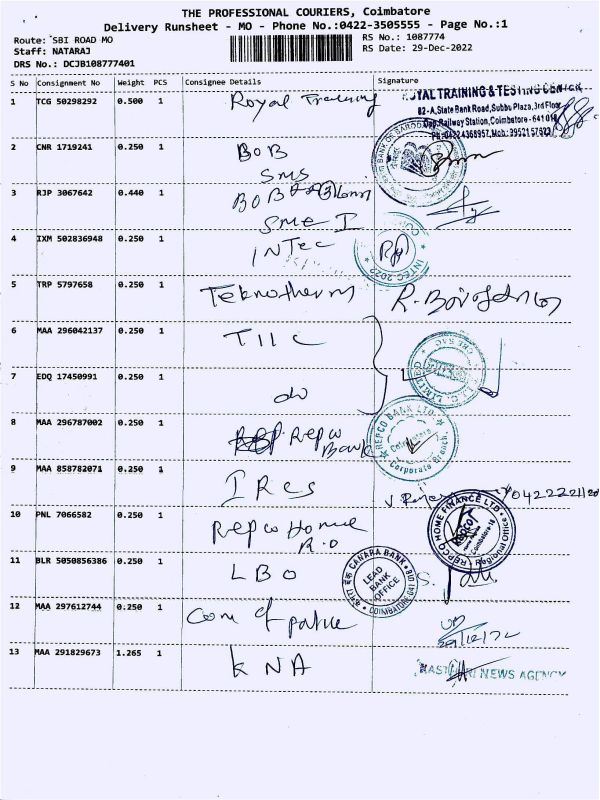 THE PROFESSIONAL COURIERS, Coimbatore
Delivery Runsheet - MO - Phone No.:0422-3505555 - Page No.:1
Route: SBI ROAD MO
RS No.: 1087774
Staff: NATARAJ
RS Date: 29-Dec-2022
DRS No.: DCJB108777401
S No Consignment No Weight PCS Consignee Details Signature
1 TCG 50298292 0.500 1 Royal Training
ROYAL TRAINING & TESTING CENTER
82-A, State Bank Road, Subbu Plaza, 3rd Floor
Opp. Railway Station, Coimbatore - 641 018
2 CNR 1719241 0.250 1 BOB
SMS
BANK OF BARODA
3 RJP 3067642 0.440 1 BOB
SME I
4 IXM 502836948 0.250 1 INTEC
INTEC 2022
5 TRP 5797658 0.250 1 Teknotherm
6 MAA 296042137 0.250 1 TIIC
LIMITED
7 EDQ 17450991 0.250 1 do
8 MAA 296787002 0.250 1 Repco
Bank
REPCO BANK LTD.
Coimbatore
Corporate Branch
9 MAA 858782071 0.250 1 IRCS
10 PNL 7066582 0.250 1 Repco Home
R.O
REPCO HOME FINANCE LTD
Coimbatore-18
Regional Office
11 BLR 5050856386 0.250 1 LBO
CANARA BANK
LEAD
BANK
OFFICE
COIMBATORE 641 018
12 MAA 297612744 0.250 1 Com of police
29/12/22
13 MAA 291829673 1.265 1 KNA
NEWS AGENCY